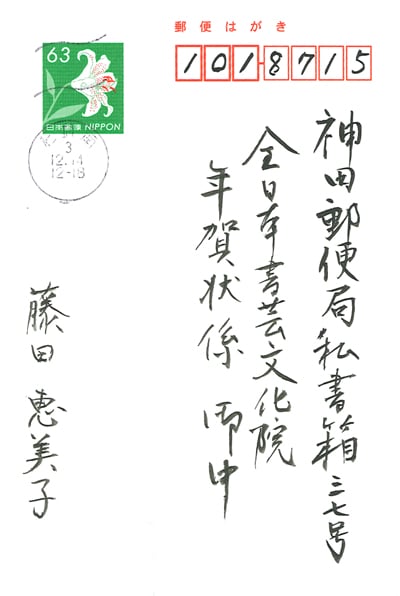 郵便はがき
1018715
63
日本郵便 NIPPON
3
12.14
12-18
神田郵便局私書箱三七号
全日本書芸文化院
年賀状係 御中
藤田恵美子